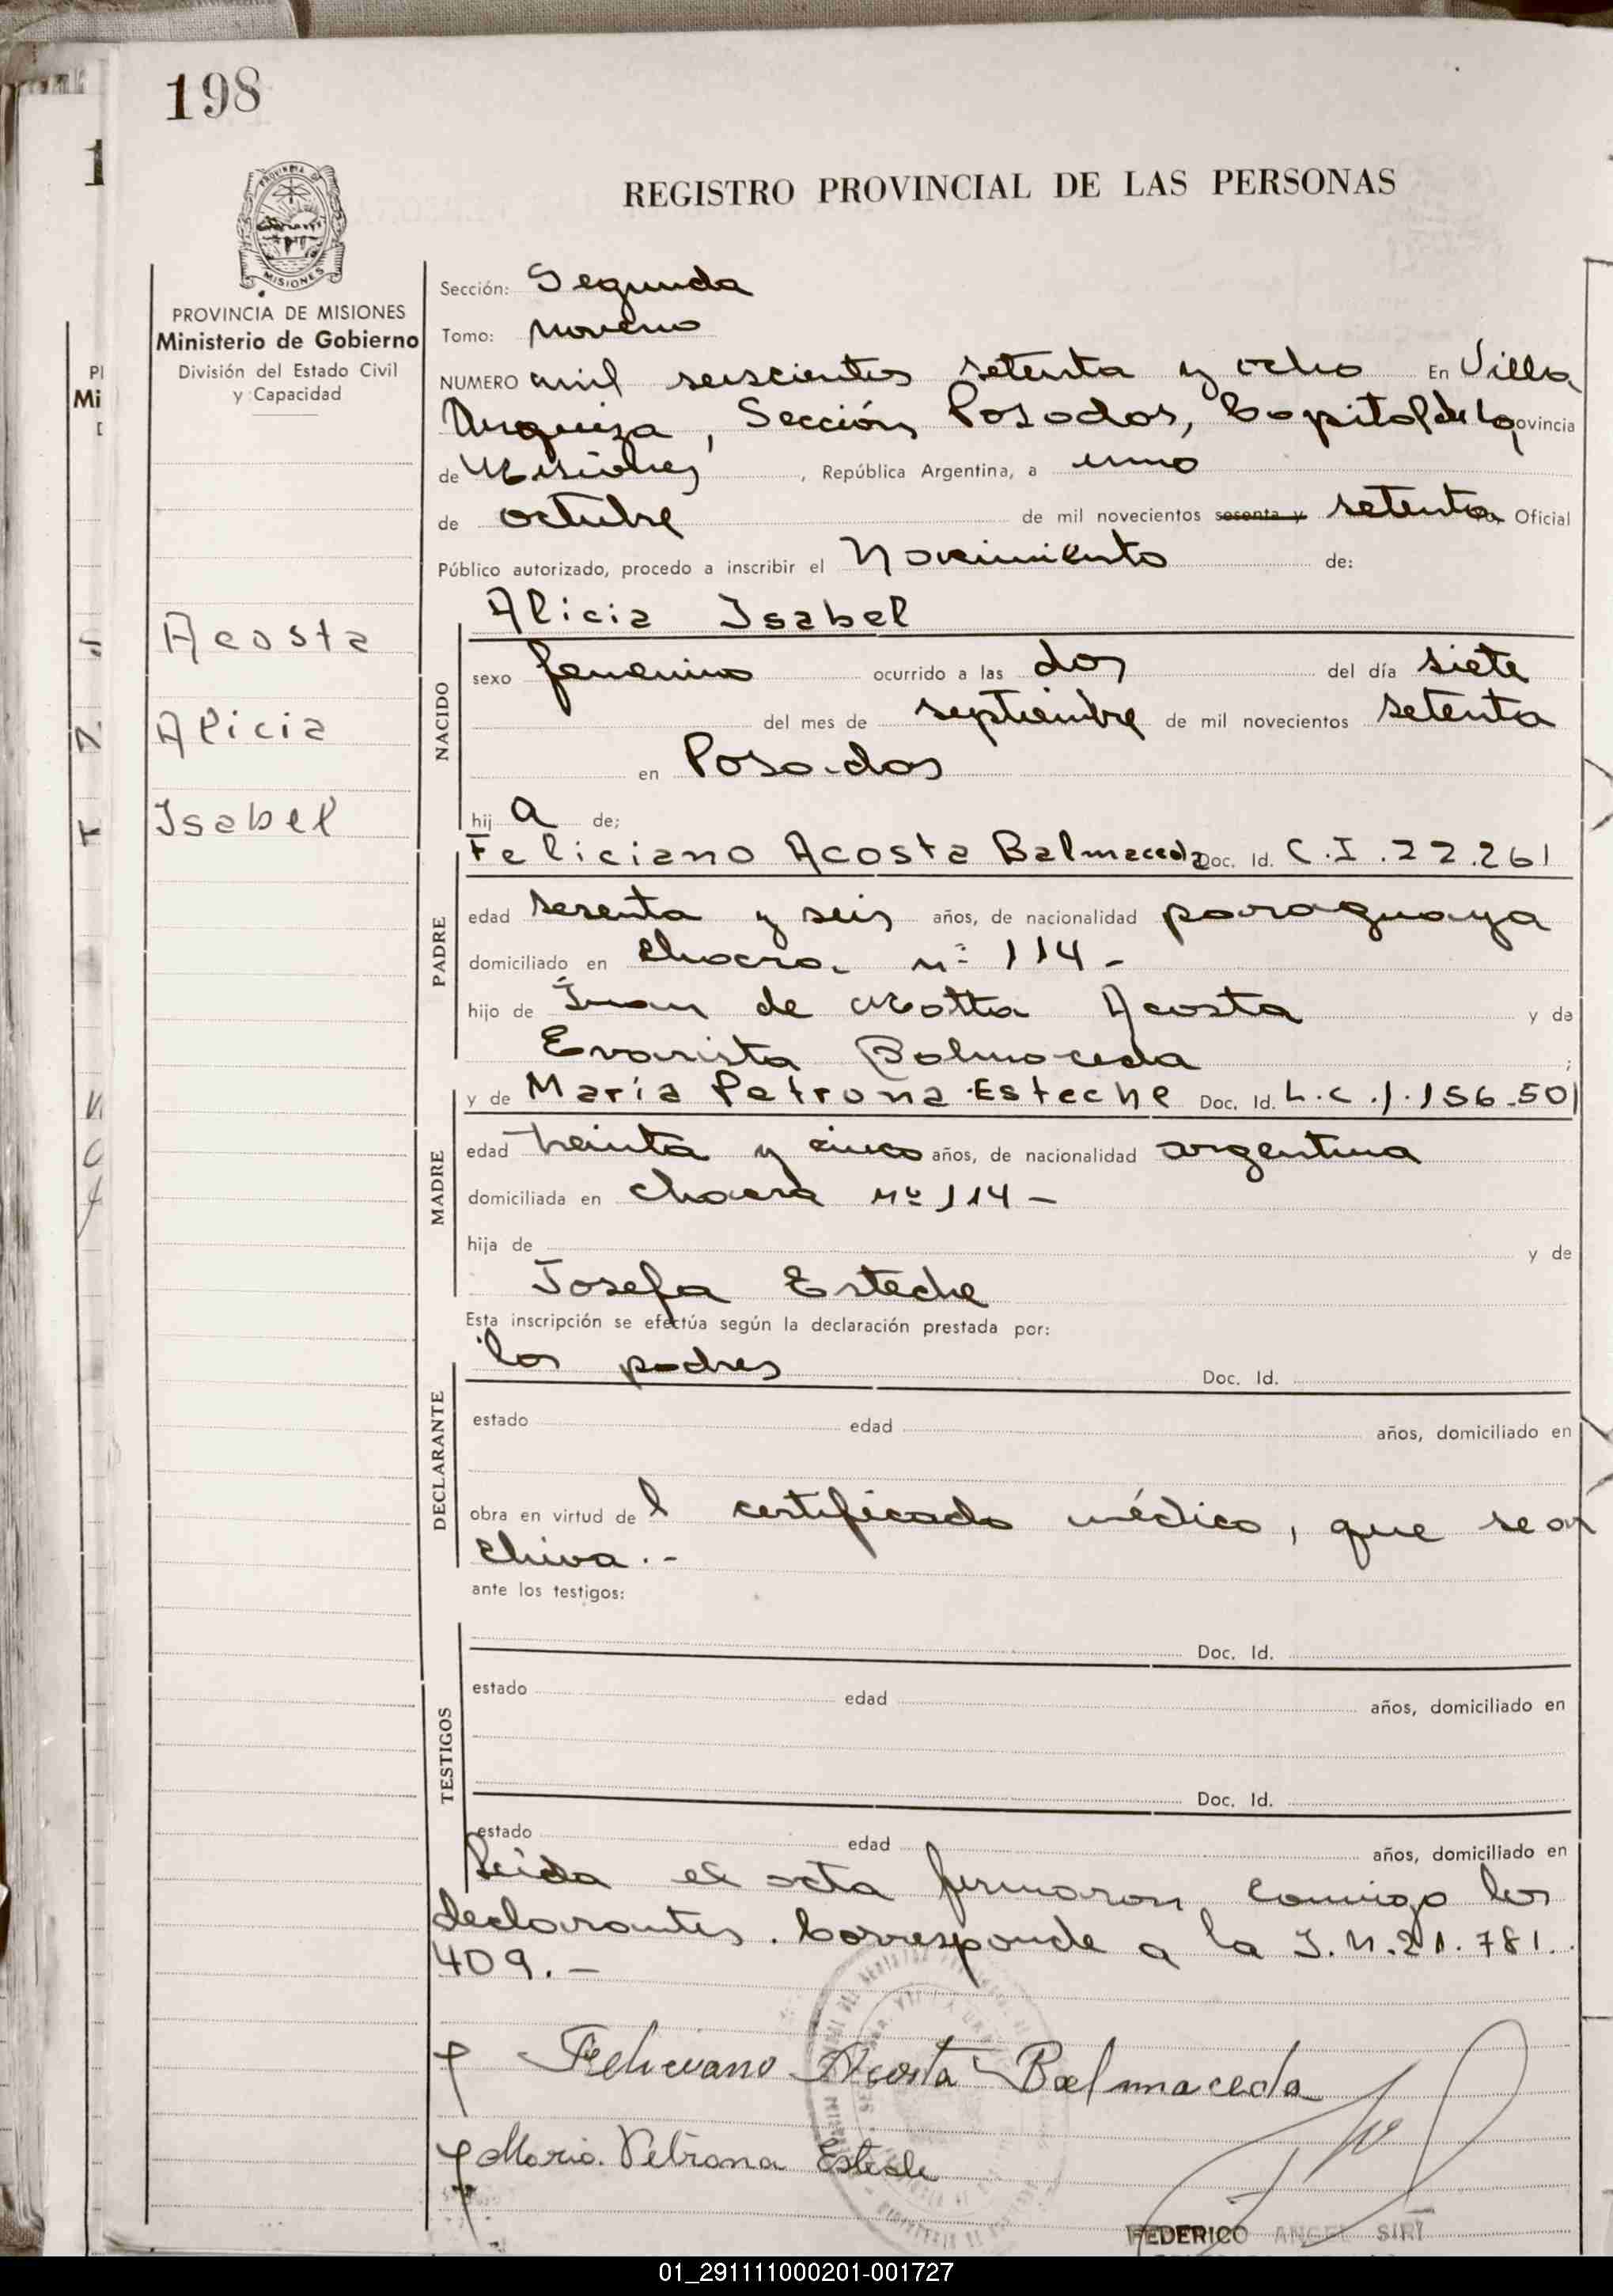 198
REGISTRO PROVINCIAL DE LAS PERSONAS
MISIONES
PROVINCIA DE MISIONES
Ministerio de Gobierno
División del Estado Civil
y Capacidad
Acosta
Alicia
Isabel
Sección: Segunda
Tomo: Noveno
NUMERO mil seiscientos setenta y ocho En Villa
Urquiza, Sección Posadas, Capital de la provincia
de Misiones, República Argentina, a uno
de octubre de mil novecientos sesenta y setenta Oficial
Público autorizado, procedo a inscribir el Nacimiento de:
Alicia Isabel
NACIDO
sexo femenino ocurrido a las dos del día siete
del mes de septiembre de mil novecientos setenta
en Posadas
hij a de;
Feliciano Acosta Balmaceda Doc. Id. C.I.22.261
PADRE
edad sesenta y seis años, de nacionalidad paraguaya
domiciliado en Chacra nº 114-
hijo de Juan de Motta Acosta y de
Evarista Balmaceda ;
y de María Petrona Esteche Doc. Id. L.C.1.156.501
MADRE
edad treinta y cinco años, de nacionalidad argentina
domiciliada en chacra Nº 114-
hija de y de
Josefa Esteche
Esta inscripción se efectúa según la declaración prestada por:
los padres Doc. Id.
DECLARANTE
estado edad años, domiciliado en
obra en virtud de l certificado médico, que se ar
chiva.-
ante los testigos:
Doc. Id.
TESTIGOS
estado edad años, domiciliado en
Doc. Id.
estado edad años, domiciliado en
Leida el acta firmaron conmigo los
declarantes. Corresponde a la I.N.21.781.
409.-
Feliciano Acosta Balmaceda
Maria Petrona Esteche
FEDERICO ANGEL SIRI
01_291111000201-001727